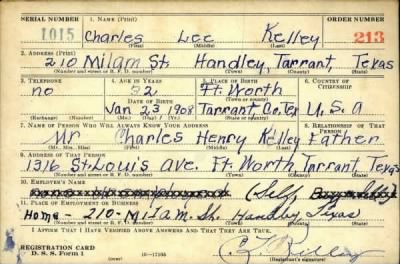 SERIAL NUMBER 1. NAME (Print) ORDER NUMBER
1015 Charles Lee Kelley 213
(First) (Middle) (Last)
2. ADDRESS (Print)
210 Milam St. Handley, Tarrant, Texas
(Number and street or R. F. D. number) (Town) (County) (State)
3. TELEPHONE 4. AGE IN YEARS 5. PLACE OF BIRTH 6. COUNTRY OF CITIZENSHIP
no 32 Ft. Worth
DATE OF BIRTH (Town or county)
Jan 23 1908 Tarrant Co. Tex U. S. A
(Exchange) (Number) (Mo.) (Day) (Yr.) (State or country)
7. NAME OF PERSON WHO WILL ALWAYS KNOW YOUR ADDRESS 8. RELATIONSHIP OF THAT PERSON
Mr Charles Henry Kelley Father
(Mr., Mrs., Miss) (First) (Middle) (Last)
9. ADDRESS OF THAT PERSON
1316 St. Louis Ave. Ft. Worth Tarrant Texas
(Number and street or R. F. D. number) (Town) (County) (State)
10. EMPLOYER'S NAME
(Self
11. PLACE OF EMPLOYMENT OR BUSINESS
Home - 210 - Milam St. Handley Texas
(Number and street or R. F. D. number) (Town) (County) (State)
I AFFIRM THAT I HAVE VERIFIED ABOVE ANSWERS AND THAT THEY ARE TRUE.
REGISTRATION CARD
D. S. S. Form 1 16—17105